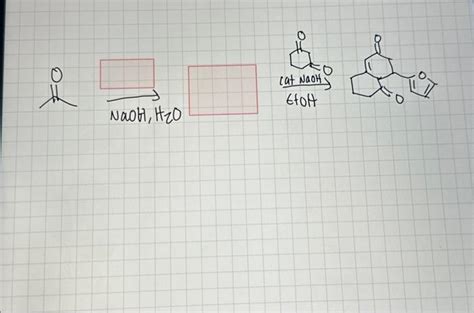 O
O
O
cat NaOH
EtOH
O
O
O
O
NaOH, H2O